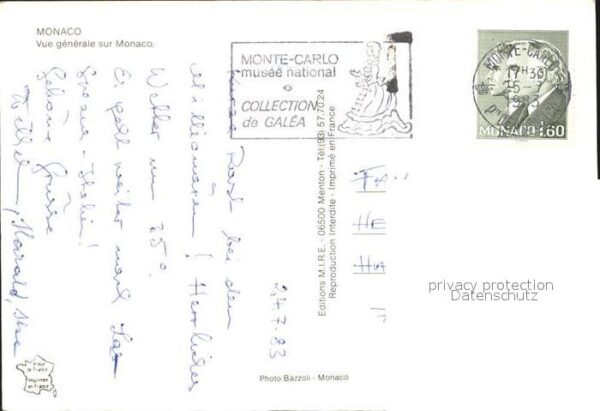 MONACO
Vue générale sur Monaco.
MONTE-CARLO
musée national
COLLECTION
de GALÉA
MONTE-CARLO
17H30
25-7
MONACO 1,60
24.7.83
Kurze Rast bei den
Millionären! Herrliches
Wetter um 25°.
Es geht weiter nach La
Spezia - Italien!
Schöne Grüsse
Harald,
Editions M.I.R.E. - 06500 Menton - Tél. (93) 57.70.24
Reproduction Interdite - Imprimé en France
Photo Bazzoli - Monaco
FA
HE
HA
privacy protection
Datenschutz